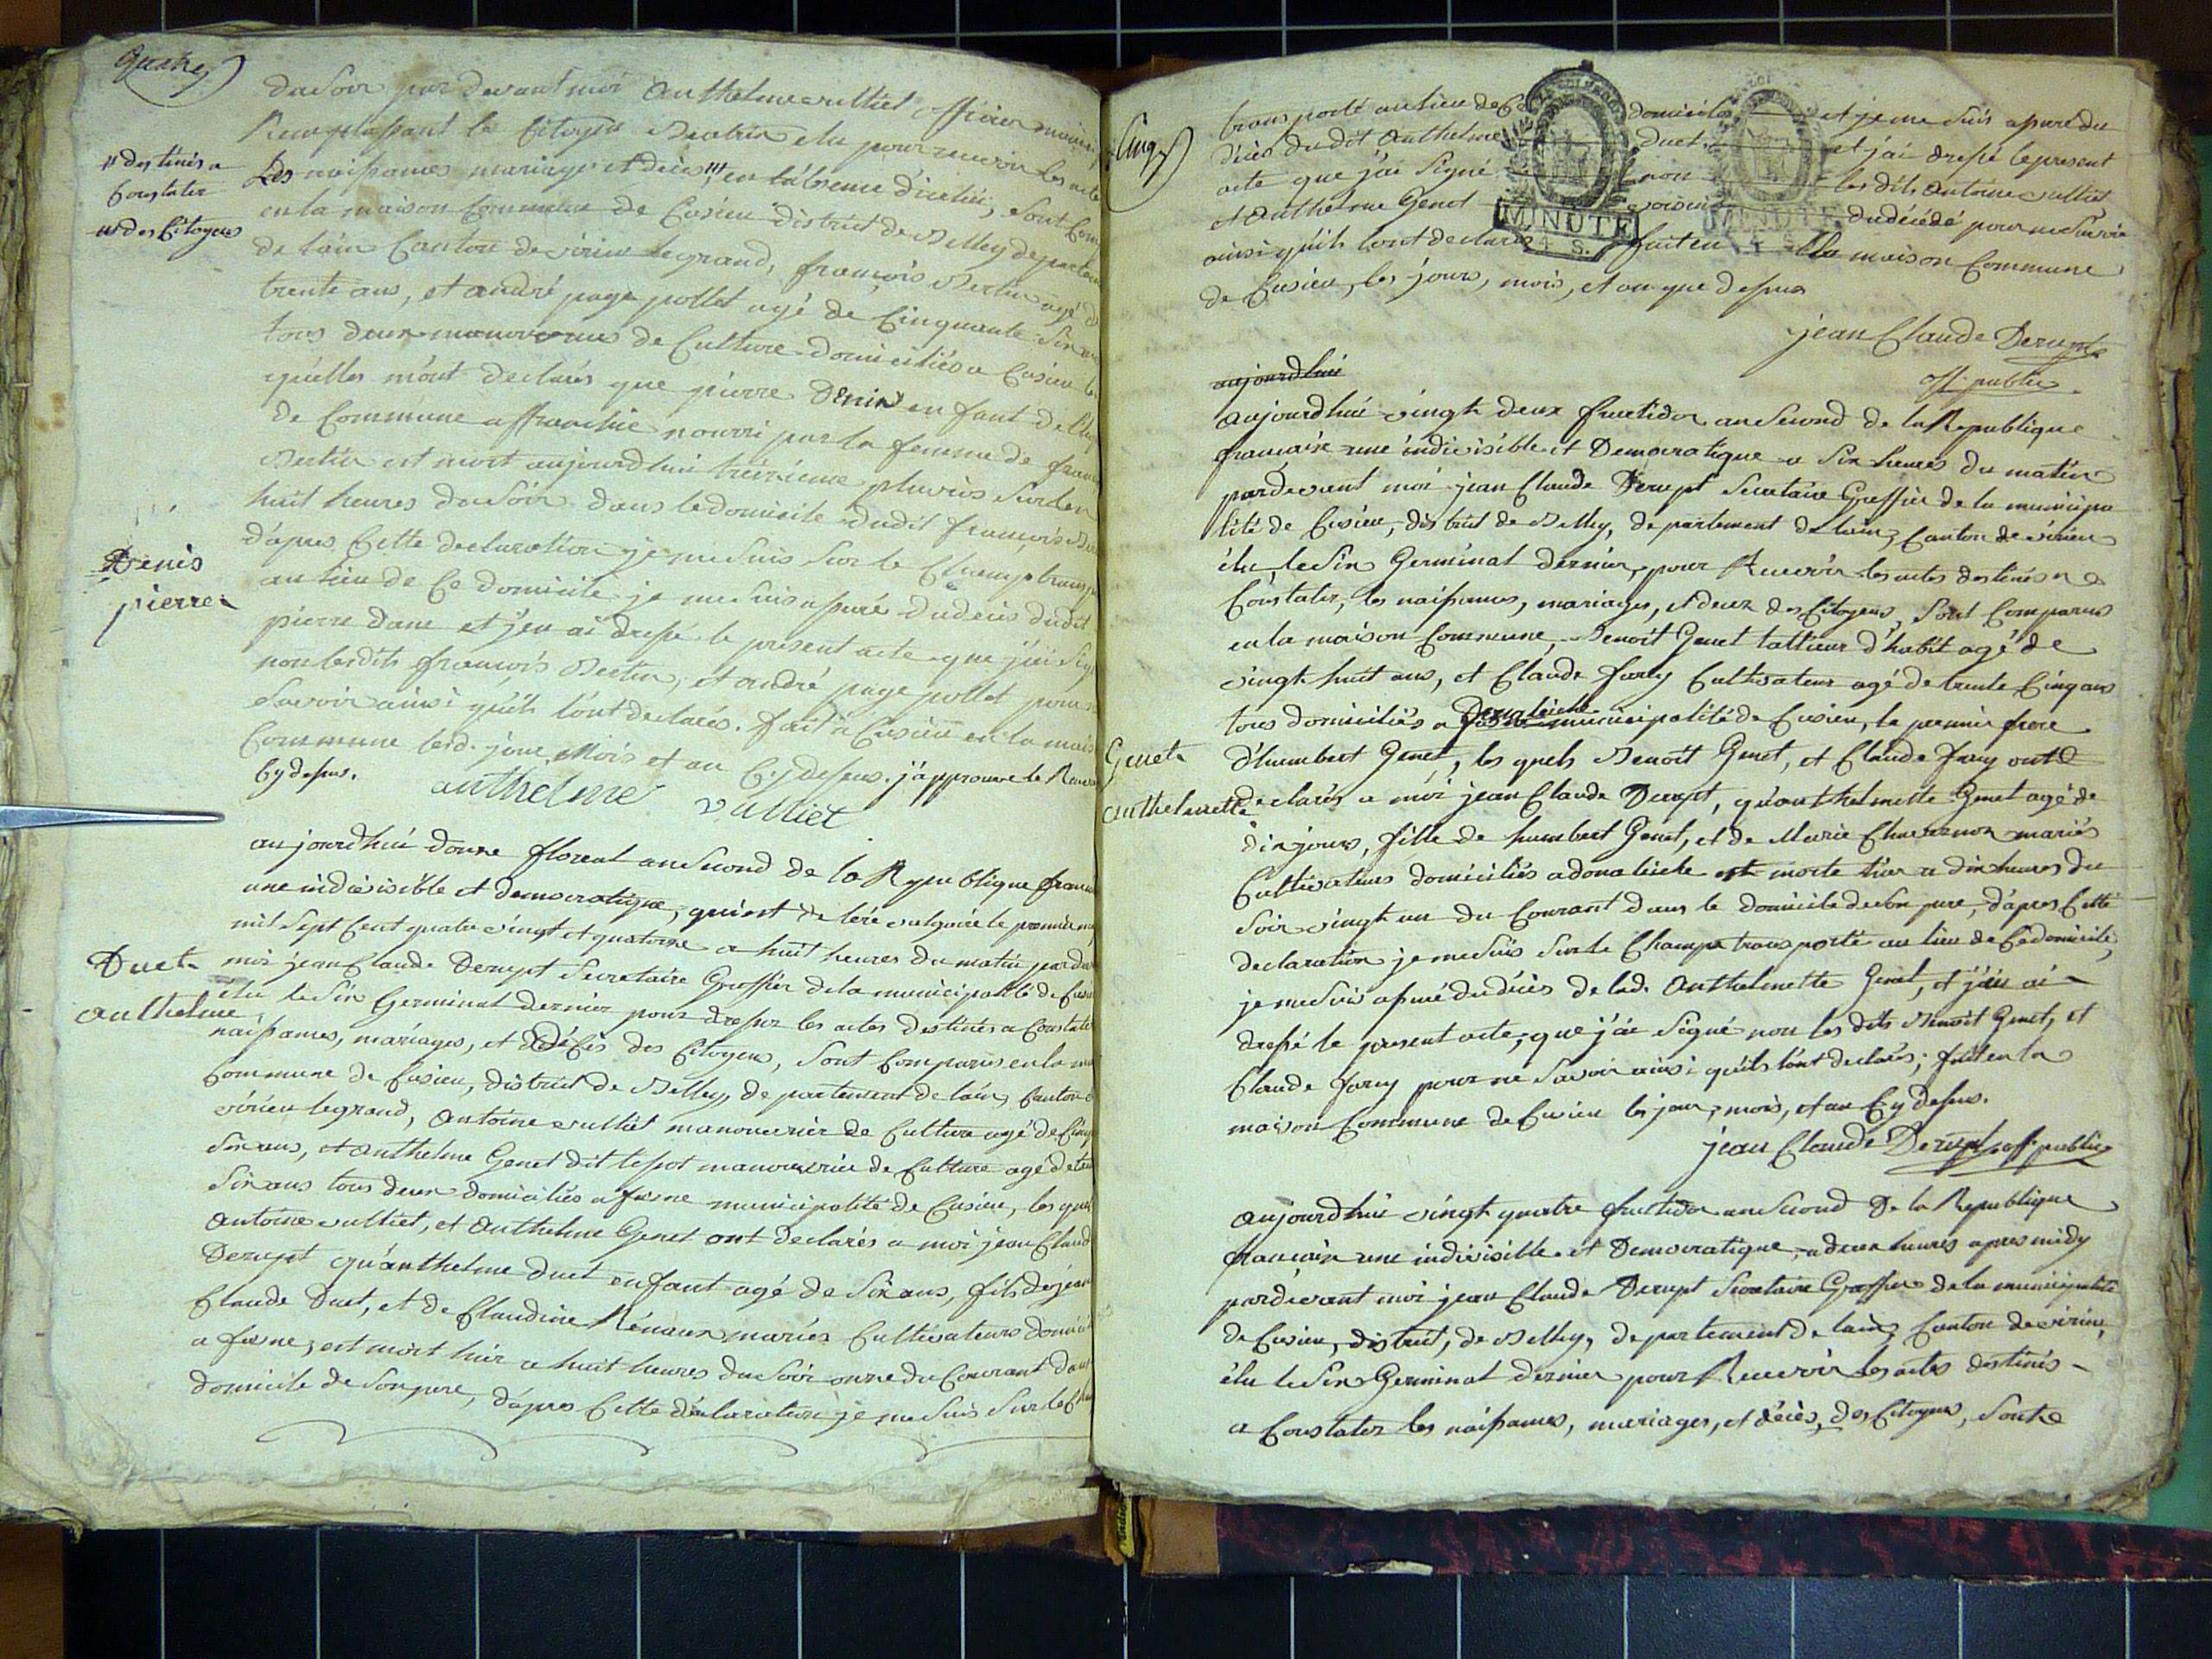 quatre
du Soir par devant moi anthelme vulliet officier munici
Remplassant le Citoyen Bertin elu pour recevoir les acte
" destinés a
Constater
"' des Citoyens
Les naissances mariage et décès "' en l'absence d'icelui, sont Com
en la maison Commune de Cusieu district de Belley departem
de l'ain Canton de virieu legrand, françois Bertin agé de
trente ans, et andré page pollet agé de Cinquante Six an
tous deux manouvriers de Culture domiciliés a Cusieu le
quelles m'ont declarés que pierre Denis enfant de l'ho
de Commune affranchie nourri par la femme de franç
Bertin est mort aujourdhui treizieme pluviôs sur les
huit heures du Soir dans le domicile dudit françois Ber
Denis
pierre
d'apres Cette declaration je me suis sur le Champ transp
au lieu de Ce domicile je me suis assuré du décès dudit
pierre Denis et j'en ai dressé le present acte que j'ai Sig
non lesdits françois Bertin, et andré page pollet pour n
Savoir ainsi qu'ils l'ont declarés. fait a Cusieu en la mais
Commune lesd. jour, Mois et an Cy dessus. j'approuve le Renvoi
Cy dessus. anthelme vulliet
aujourdhui douze floreal an Second de la Republique franca
une indivisible et democratique, qui est de l'ére vulgaire le premier may
mil Sept Cent quatre vingt et quatorze a huit heures du matin par dev
Duet
anthelme
moi jean Claude Derupt Secretaire Greffier de la municipalité de Cusieu
élu le Six Germinal dernier pour dresser les actes destinés a Constater
naissances, mariages, et décès des Citoyens, Sont Comparus en la mai
Commune de Cusieu, district de Belley, departement de l'ain, Canton de
virieu legrand, antoine vulliet manouvrier de Culture agé de Cinqu
Six ans, et anthelme Genet dit lepot manouvrier de Culture agé de tre
Six ans tous deux domiciliés a fusne municipalité de Cusieu, les quel
antoine vulliet, et anthelme Genet ont declarés a moi jean Claud
Derupt qu'anthelme duet enfant agé de Six ans, fils de jean
Claude Duet, et de Claudine Rénaux mariés Cultivateurs domicili
a fusne, est mort hier a huit heures du Soir onze du Courant dans
domicile de Son pere, d'apres Cette déclaration je me suis Sur le Cha
Cinq
transporté au lieu de Ce domicile et je me suis assuré du
décès du dit anthelme Duet et j'ai dressé le present
acte que j'ai Signé non les dits antoine vulliet
et anthelme Genet voisins du décédé pour ne Savoir
ainsi qu'ils l'ont declarés fait en la maison Commune
de Cusieu, les jours, mois, et an que dessus
MINUTE
4 S.
MINUTE
jean Claude Derupt
off. public
aujourdhui
aujourdhui vingt deux fructidor an Second de la Republique
francaise une indivisible et Democratique a Six heures du matin
pardevant moi jean Claude Derupt Secretaire Greffier de la municipa
lité de Cusieu, district de Belley, departement de l'ain, Canton de virieu
élu, le Six Germinal dernier, pour Recevoir les actes destinés a
Constater, les naissances, mariages, et décez des Citoyens, Sont Comparus
en la maison Commune, Benoit Genet tallieur d'habit agé de
vingt huit ans, et Claude farcy Cultivateur agé de trente Cinq ans
tous domiciliés a Donaleiche municipalité de Cusieu, le premier frere
Genet
anthelmette
d'humbert Genet, les quels Benoit Genet, et Claude farcy ont
declarés a moi jean Claude Derupt, qu'anthelmette Genet agé de
dix jours, fille de humbert Genet, et de Marie Chavernon mariés
Cultivateurs domiciliés a donaleiche est morte hier a dix heures du
Soir vingt un du Courant dans le domicile de Son pere, d'apres Cette
declaration je me suis Sur le Champ transporté au lieu de Ce domicile,
je me suis assuré du décès de lad. anthelmette Genet, et j'en ai
dressé le present acte, que j'ai Signé non les dits Benoit Genet, et
Claude farcy pour ne Savoir ainsi qu'ils l'ont declarés; fait en la
maison Commune de Cusieu les jour, mois, et an Cy dessus.
jean Claude Derupt off public
aujourdhui vingt quatre fructidor an Second De la Republique
francaise une indivisible et Democratique, a deux heures apres midy
pardevant moi jean Claude Derupt Secretaire Greffier de la municipalité
de Cusieu, district, de Belley, departement de l'ain, Canton de virieu,
élu le Six Germinal dernier pour Recevoir les actes destinés
a Constater les naissances, mariages, et décès, des Citoyens, Sont